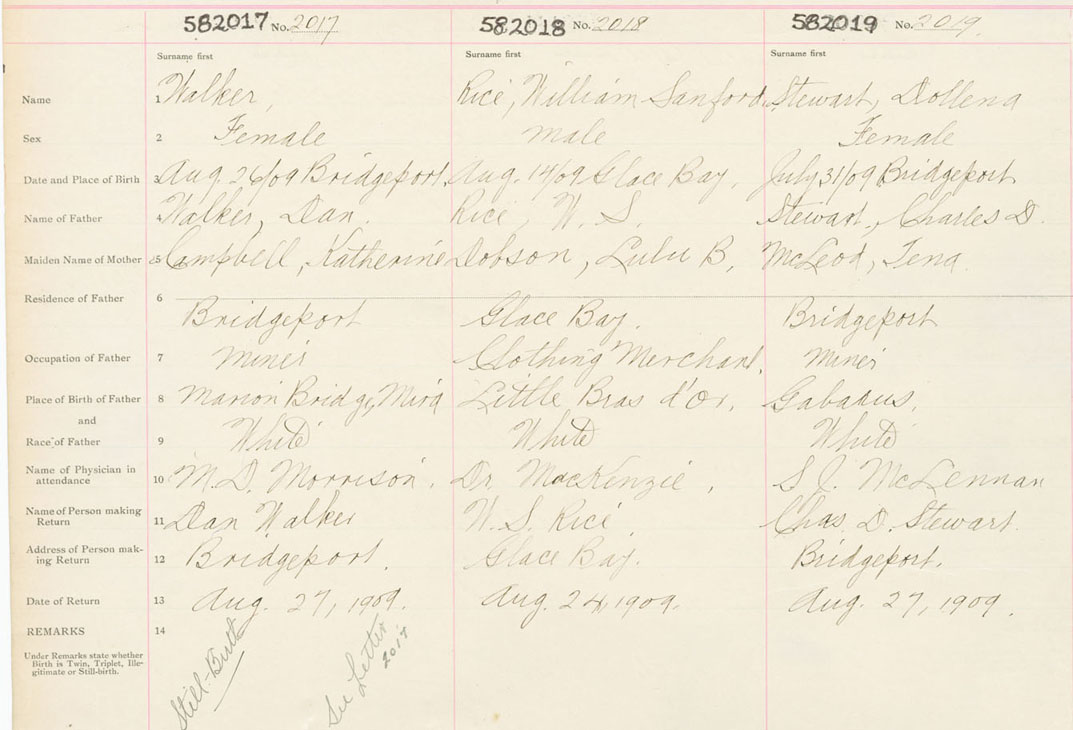 582017 No. 2017 582018 No. 2018 582019 No. 2019
Surname first Surname first Surname first
Name 1 Walker, Rice, William Sanford Stewart, Dollena
Sex 2 Female male Female
Date and Place of Birth 3 Aug. 26/09 Bridgeport. Aug. 14/09 Glace Bay. July 31/09 Bridgeport
Name of Father 4 Walker, Dan. Rice W. S. Stewart, Charles D.
Maiden Name of Mother 5 Campbell, Katherine Dobson, Lulu B, McLeod, Tena.
Residence of Father 6
Bridgeport Glace Bay. Bridgeport
Occupation of Father 7 Miner Clothing Merchant. Miner
Place of Birth of Father 8 Marion Bridge, Mira Little Bras d'Or. Gabarus.
and
Race of Father 9 White White White
Name of Physician in
attendance 10 M. D. Morrison. Dr. MacKenzie, S J. McLennan
Name of Person making
Return 11 Dan Walker W. S. Rice Chas. D. Stewart.
Address of Person mak-
ing Return 12 Bridgeport. Glace Bay. Bridgeport.
Date of Return 13 Aug. 27, 1909. Aug. 24, 1909. Aug. 27, 1909.
REMARKS 14
Under Remarks state whether
Birth is Twin, Triplet, Ille-
gitimate or Still-birth.
Still-Birth
See Letter
2017